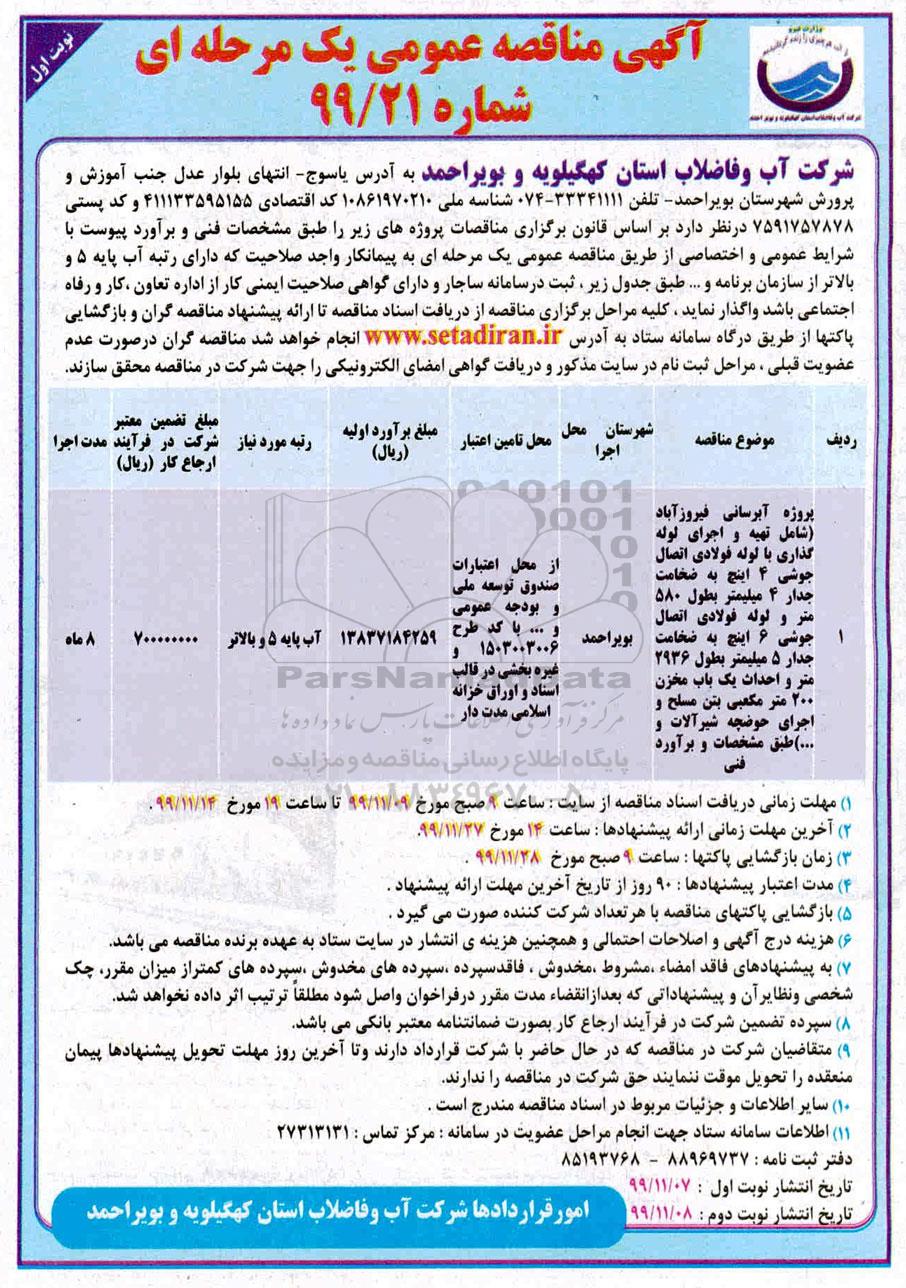 نوبت اول
آگهی مناقصه عمومی یک مرحله ای
شماره ۹۹/۲۱
وزارت نیرو
شرکت آب وفاضلاب استان کهگیلویه و بویر احمد
شرکت آب وفاضلاب استان کهگیلویه و بویراحمد به آدرس یاسوج- انتهای بلوار عدل جنب آموزش و
پرورش شهرستان بویراحمد- تلفن ۳۳۳۴۱۱۱۱-۰۷۴ شناسه ملی ۱۰۸۶۱۹۷۰۲۱۰ کد اقتصادی ۴۱۱۱۳۳۵۹۵۱۵۵ و کد پستی
۷۵۹۱۷۵۷۸۷۸ درنظر دارد بر اساس قانون برگزاری مناقصات پروژه های زیر را طبق مشخصات فنی و برآورد پیوست با
شرایط عمومی و اختصاصی از طریق مناقصه عمومی یک مرحله ای به پیمانکار واجد صلاحیت که دارای رتبه آب پایه ۵ و
بالاتر از سازمان برنامه و ... طبق جدول زیر ، ثبت درسامانه ساجار و دارای گواهی صلاحیت ایمنی کار از اداره تعاون ،کار و رفاه
اجتماعی باشد واگذار نماید ، کلیه مراحل برگزاری مناقصه از دریافت اسناد مناقصه تا ارائه پیشنهاد مناقصه گران و بازگشایی
پاکتها از طریق درگاه سامانه ستاد به آدرس www.setadiran.ir انجام خواهد شد مناقصه گران درصورت عدم
عضویت قبلی ، مراحل ثبت نام در سایت مذکور و دریافت گواهی امضای الکترونیکی را جهت شرکت در مناقصه محقق سازند.
ردیف
موضوع مناقصه
شهرستان محل
اجرا
محل تامین اعتبار
مبلغ برآورد اولیه
(ریال)
رتبه مورد نیاز
مبلغ تضمین معتبر
شرکت در فرآیند
ارجاع کار (ریال)
مدت اجرا
۱
پروژه آبرسانی فیروزآباد
(شامل تهیه و اجرای لوله
گذاری با لوله فولادی اتصال
جوشی ۴ اینچ به ضخامت
جدار ۴ میلیمتر بطول ۵۸۰
متر و لوله فولادی اتصال
جوشی ۶ اینچ به ضخامت
جدار ۵ میلیمتر بطول ۲۹۳۶
متر و احداث یک باب مخزن
۲۰۰ متر مکعبی بتن مسلح و
اجرای حوضچه شیرآلات و
...)طبق مشخصات و برآورد
فنی
بویراحمد
از محل اعتبارات
صندوق توسعه ملی
و بودجه عمومی
و ... با کد طرح
۱۵۰۳۰۰۳۰۰۶ و
غیره بخشی در قالب
اسناد و اوراق خزانه
اسلامی مدت دار
۱۳۸۳۷۱۸۴۲۵۹
آب پایه ۵ و بالاتر
۷۰۰۰۰۰۰۰۰
۸ ماه
ParsNamadData
مرکز فرآوری اطلاعات پارس نماد داده ها
پایگاه اطلاع رسانی مناقصه و مزایده
۰۲۱-۸۸۳۴۹۶۷۰-۵
۱) مهلت زمانی دریافت اسناد مناقصه از سایت : ساعت ۹ صبح مورخ ۹۹/۱۱/۰۹ تا ساعت ۱۹ مورخ ۹۹/۱۱/۱۴ .
۲) آخرین مهلت زمانی ارائه پیشنهادها : ساعت ۱۴ مورخ ۹۹/۱۱/۲۷.
۳) زمان بازگشایی پاکتها : ساعت ۹ صبح مورخ ۹۹/۱۱/۲۸ .
۴) مدت اعتبار پیشنهادها : ۹۰ روز از تاریخ آخرین مهلت ارائه پیشنهاد .
۵) بازگشایی پاکتهای مناقصه با هرتعداد شرکت کننده صورت می گیرد .
۶) هزینه درج آگهی و اصلاحات احتمالی و همچنین هزینه ی انتشار در سایت ستاد به عهده برنده مناقصه می باشد.
۷) به پیشنهادهای فاقد امضاء ،مشروط ،مخدوش ، فاقدسپرده ،سپرده های مخدوش ،سپرده های کمتراز میزان مقرر، چک
شخصی ونظایرآن و پیشنهاداتی که بعدازانقضاء مدت مقرر درفراخوان واصل شود مطلقاً ترتیب اثر داده نخواهد شد.
۸) سپرده تضمین شرکت در فرآیند ارجاع کار بصورت ضمانتنامه معتبر بانکی می باشد.
۹) متقاضیان شرکت در مناقصه که در حال حاضر با شرکت قرارداد دارند وتا آخرین روز مهلت تحویل پیشنهادها پیمان
منعقده را تحویل موقت ننمایند حق شرکت در مناقصه را ندارند.
۱۰) سایر اطلاعات و جزئیات مربوط در اسناد مناقصه مندرج است .
۱۱) اطلاعات سامانه ستاد جهت انجام مراحل عضویت در سامانه : مرکز تماس : ۲۷۳۱۳۱۳۱
دفتر ثبت نامه : ۸۸۹۶۹۷۳۷ - ۸۵۱۹۳۷۶۸
تاریخ انتشار نوبت اول : ۹۹/۱۱/۰۷
تاریخ انتشار نوبت دوم : ۹۹/۱۱/۰۸
امورقراردادها شرکت آب وفاضلاب استان کهگیلویه و بویراحمد